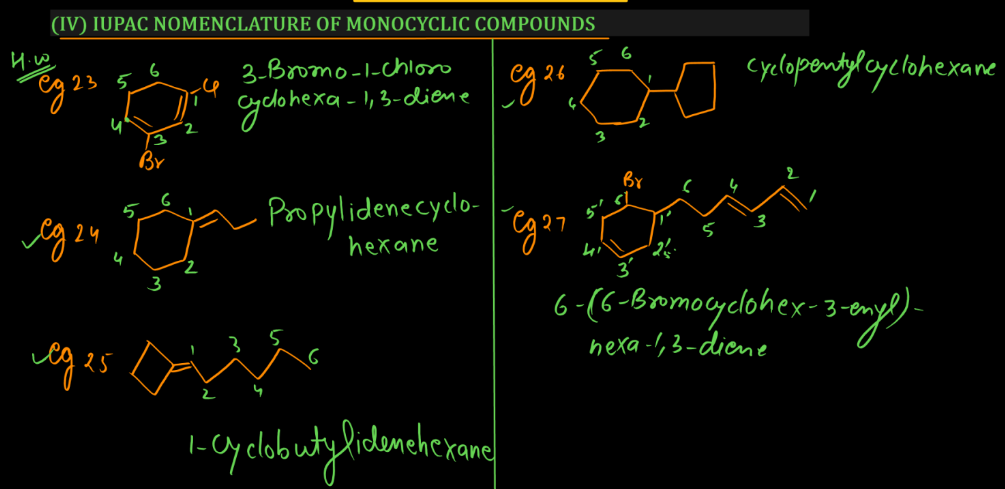 (IV) IUPAC NOMENCLATURE OF MONOCYCLIC COMPOUNDS
H.W
eg 23
6
5
Cl
1
4
2
3
Br
3-Bromo-1-chloro
cyclohexa-1,3-diene
eg 24
6
5
1
4
2
3
Propylidenecyclo-
hexane
eg 25
1
3
5
6
2
4
1-Cyclobutylidenehexane
eg 26
5
6
1
4
3
2
cyclopentylcyclohexane
eg 27
Br
6'
6
4
2
1
5'
1'
5
3
4'
2'
3'
6-(6-Bromocyclohex-3-enyl)-
hexa-1,3-diene